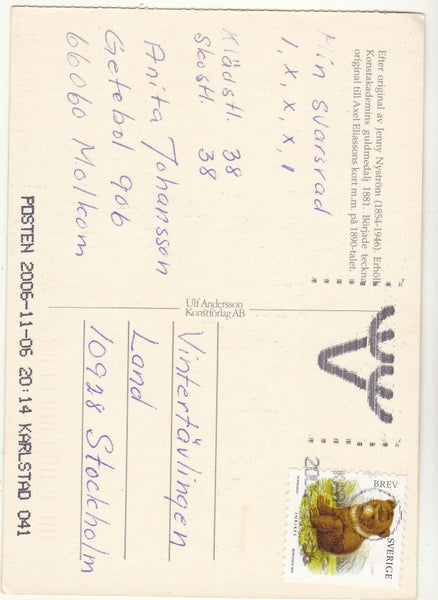 Efter original av Jenny Nyström (1854-1946). Erhöll
Konstakademins guldmedalj 1881. Började teckna
original till Axel Eliassons kort m.m. på 1890-talet.
Min svarsrad
1, x, x, x, 1
Klädstl. 38
Skostl. 38
Anita Johansson
Getebol 906
66060 Molkom
Ulf Andersson
Konstförlag AB
Vintertävlingen
Land
10928 Stockholm
BREV
SVERIGE
POSTEN 2006-11-06 20:14 KARLSTAD 041